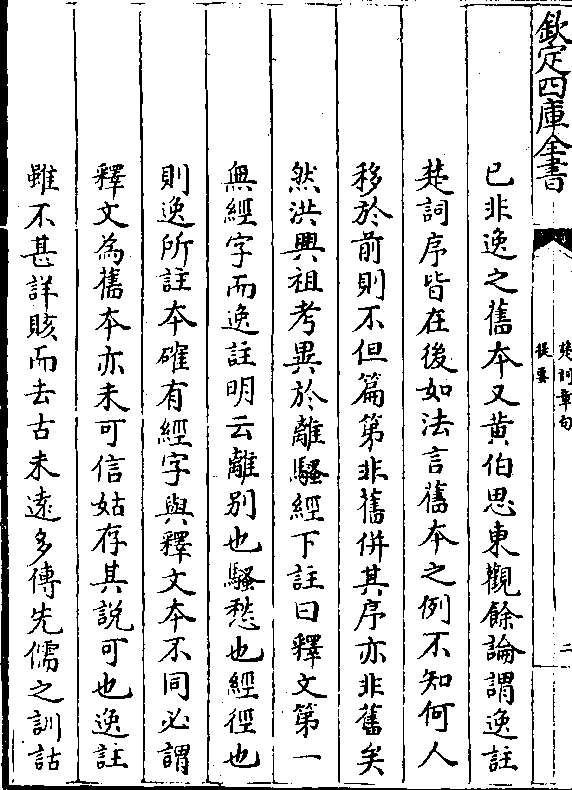 欽定四庫全書
楚詞章句
提要
二
已非逸之舊本又黃伯思東觀餘論謂逸註
楚詞序皆在後如法言舊本之例不知何人
移於前則不但篇第非舊併其序亦非舊矣
然洪興祖考異於離騷經下註曰釋文第一
無經字而逸註明云離別也騷愁也經徑也
則逸所註本確有經字與釋文本不同必謂
釋文為舊本亦未可信姑存其說可也逸註
雖不甚詳賅而去古未遠多傳先儒之訓詁